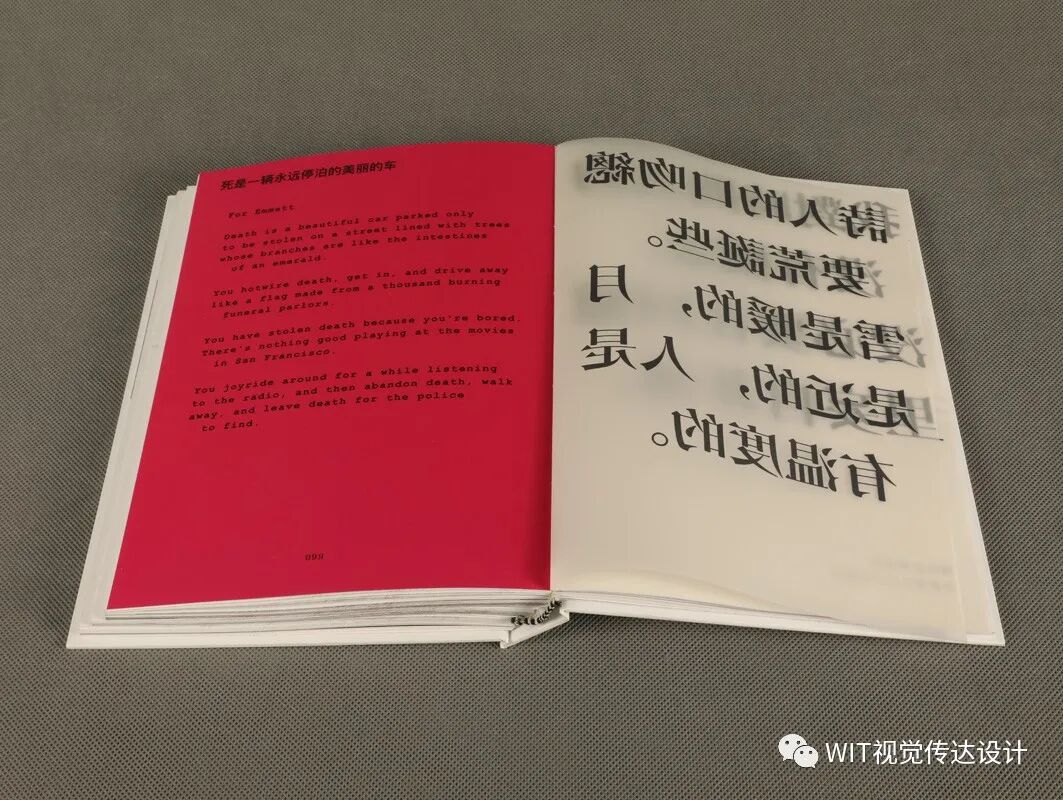 死是一辆永远停泊的美丽的车
For Emmett
Death is a beautiful car parked only
to be stolen on a street lined with trees
whose branches are like the intestines
of an emerald.
You hotwire death, get in, and drive away
like a flag made from a thousand burning
funeral parlors.
You have stolen death because you're bored.
There's nothing good playing at the movies
in San Francisco.
You joyride around for a while listening
to the radio, and then abandon death, walk
away, and leave death for the police
to find.
099
詩人的口吻總
要荒誕些。
雪是暖的，月
是近的，人是
有温度的。
WIT视觉传达设计